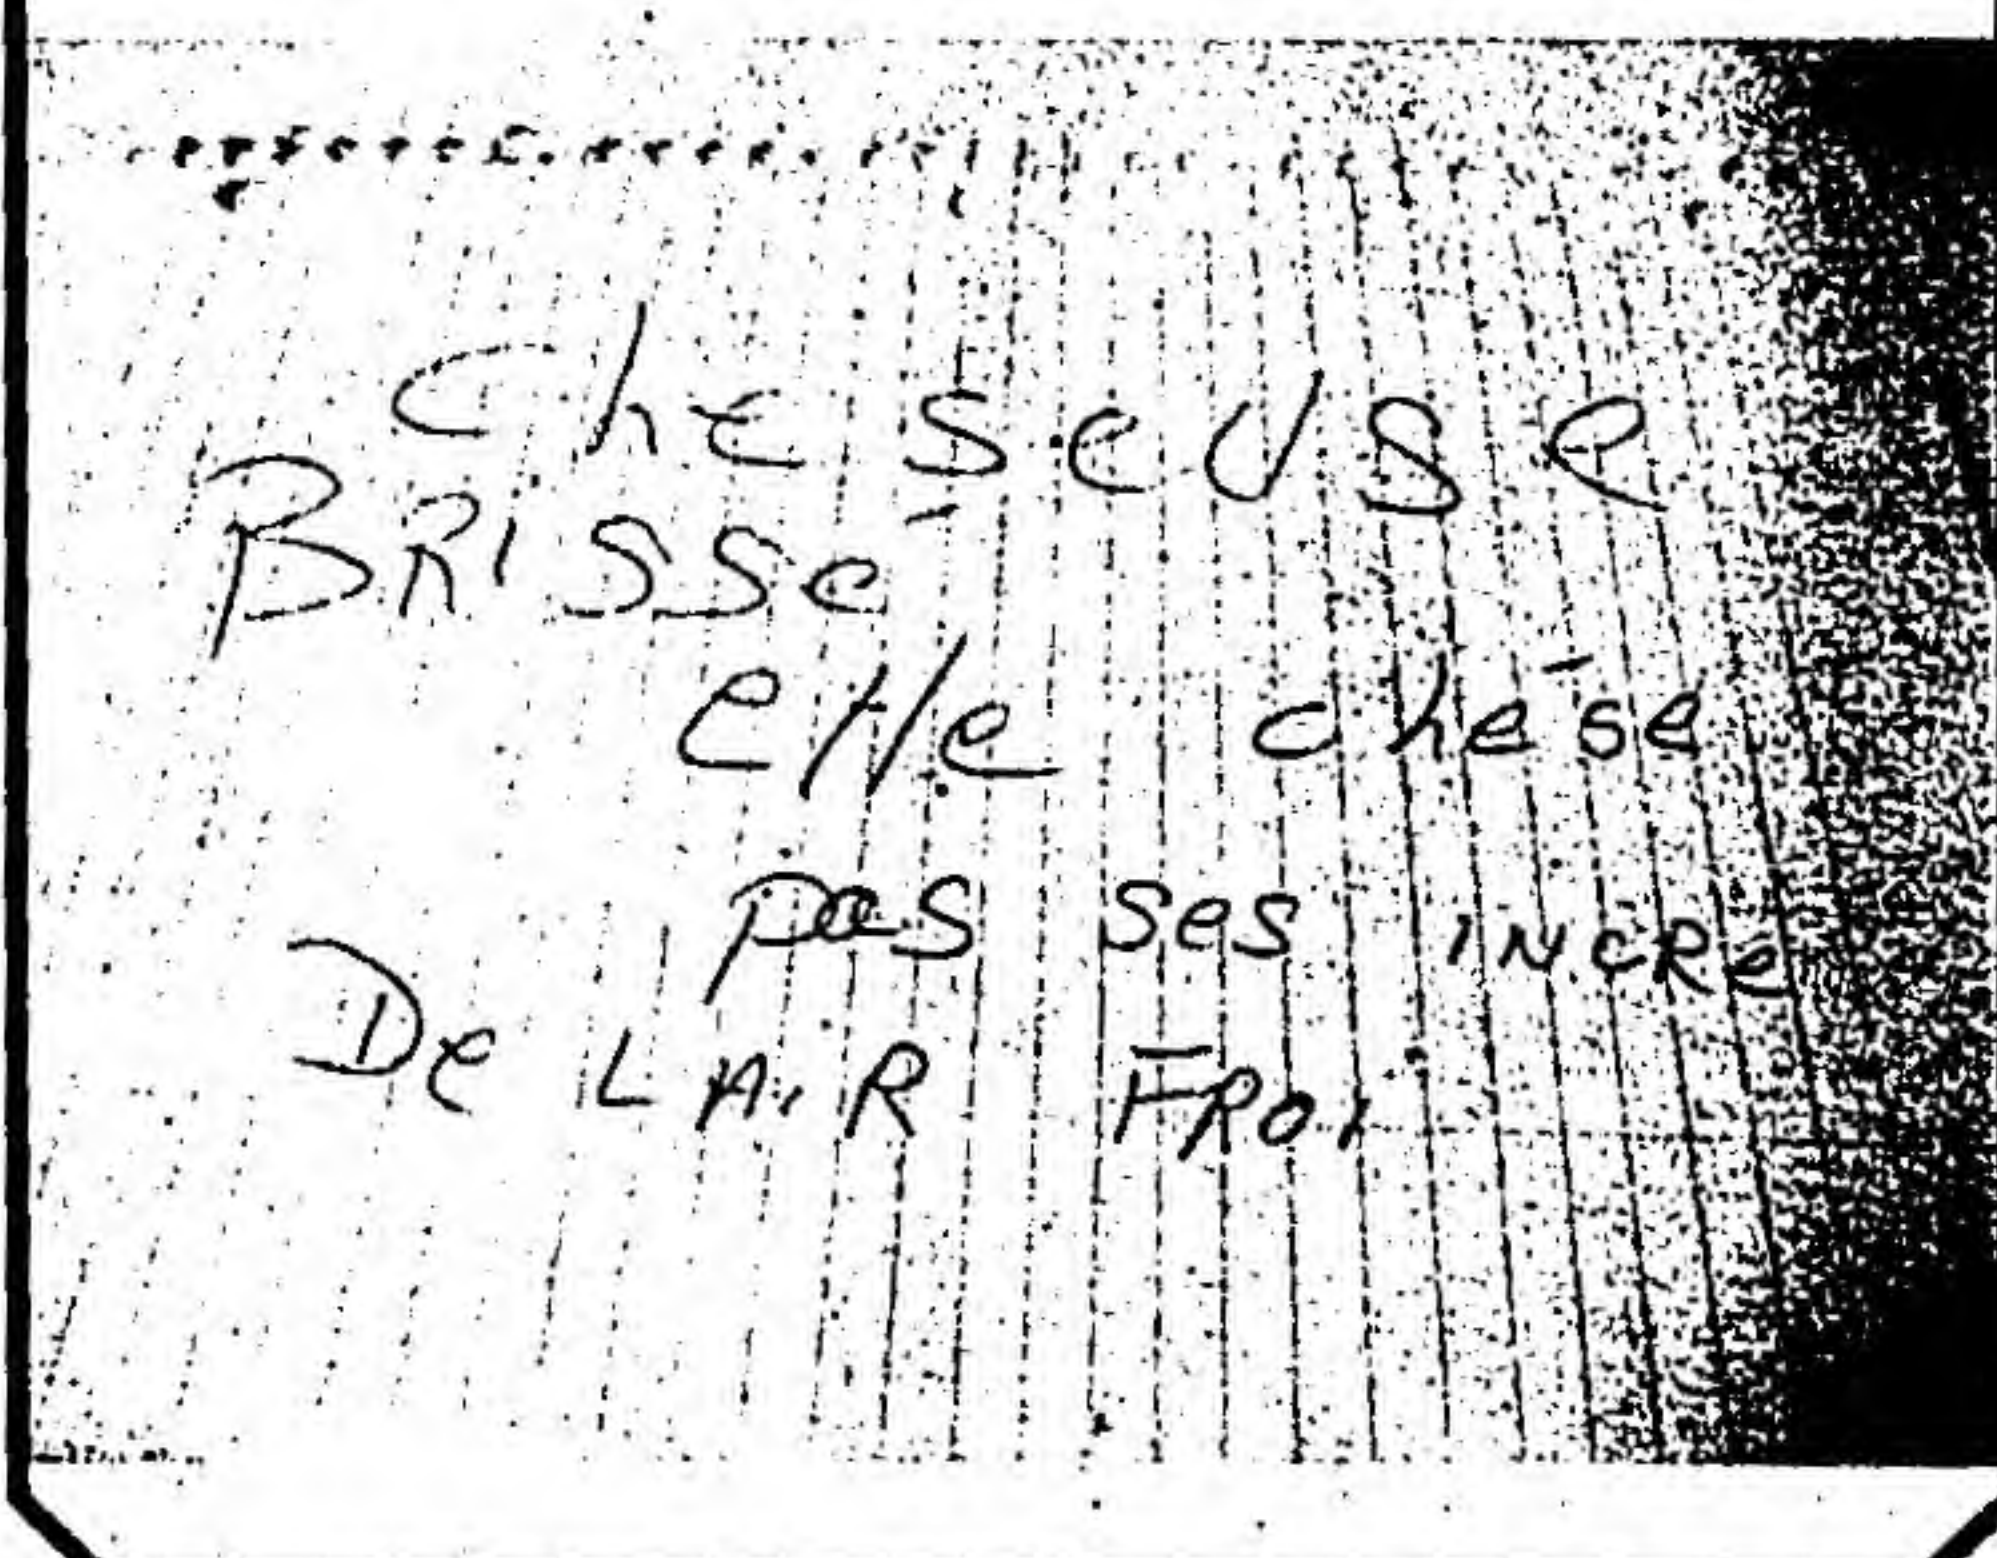 ChE SeUSe
BRISSé
elle chése
pas ses INCRe
De L AiR FROi